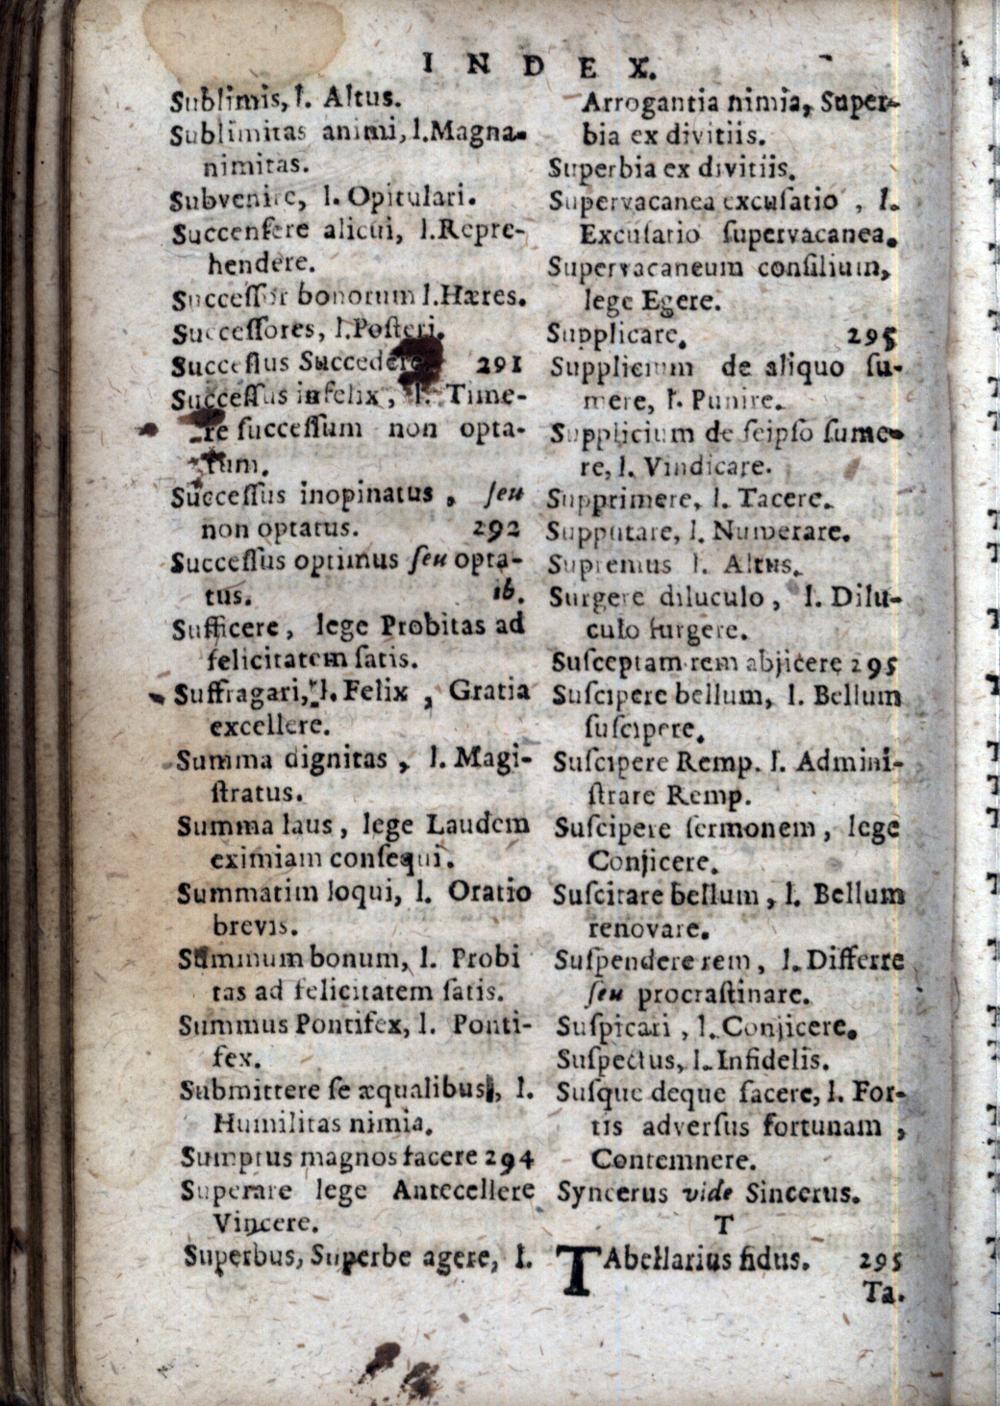 INDEX.
Sublimis, l. Altus.
Sublimitas animi, l. Magna-
nimitas.
Subvenire, l. Opitulari.
Succenſere alicui, l. Repre-
hendere.
Succeſſor bonorum l. Hæres.
Succeſſores, l. Poſteri.
Succeſſus Succedere 291
Succeſſus infelix, l. Time-
re ſucceſſum non opta-
tum.
Succeſſus inopinatus, ſeu
non optatus. 292
Succeſſus optimus ſeu opta-
tus. ib.
Sufficere, lege Probitas ad
felicitatem ſatis.
Suffragari, l. Felix, Gratia
excellere.
Summa dignitas, l. Magi-
ſtratus.
Summa laus, lege Laudem
eximiam conſequi.
Summatim loqui, l. Oratio
brevis.
Summum bonum, l. Probi
tas ad felicitatem ſatis.
Summus Pontifex, l. Ponti-
fex.
Submittere ſe æqualibus, l.
Humilitas nimia.
Sumptus magnos facere 294
Superare lege Antecellere
Vincere.
Superbus, Superbe agere, l.
Arrogantia nimia, Super-
bia ex divitiis.
Superbia ex divitiis.
Supervacanea excuſatio, l.
Excuſatio ſupervacanea.
Supervacaneum conſilium,
lege Egere.
Supplicare. 295
Supplicium de aliquo ſu-
mere, l. Punire.
Supplicium de ſeipſo ſume-
re, l. Vindicare.
Supprimere, l. Tacere.
Supputare, l. Numerare.
Supremus l. Altus.
Surgere diluculo, l. Dilu-
culo ſurgere.
Suſceptam rem abjicere 295
Suſcipere bellum, l. Bellum
ſuſcipere.
Suſcipere Remp. l. Admini-
ſtrare Remp.
Suſcipere ſermonem, lege
Conjicere.
Suſcitare bellum, l. Bellum
renovare.
Suſpendere rem, l. Differre
ſeu procraſtinare.
Suſpicari, l. Conjicere.
Suſpectus, l. Infidelis.
Suſque deque facere, l. For-
tis adverſus fortunam,
Contemnere.
Syncerus vide Sincerus.
T
TAbellarius fidus. 295
Ta.